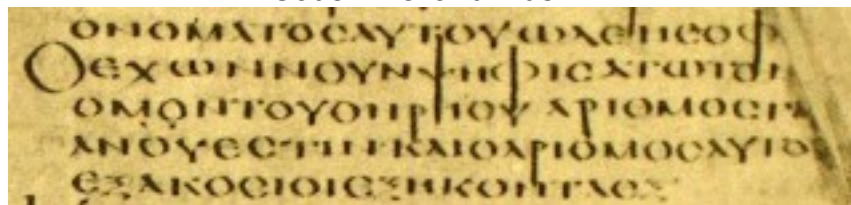 ΟΝΟΜΑΤΟϹΑΥΤΟΥΩΔΕΗϹΟΦ
ΟΕΧΩΝΝΟΥΝΨΗΦΙϹΑΤΩΤΟΝ
ΘΜΟΝΤΟΥΘΗΡΙΟΥ ΑΡΙΘΜΟϹΓΑ
ΑΝΟΥΕϹΤΙΝΚΑΙΟΑΡΙΘΜΟϹΑΥΤΟ
ΕΞΑΚΟϹΙΟΙΕΞΗΚΟΝΤΑΕΞ